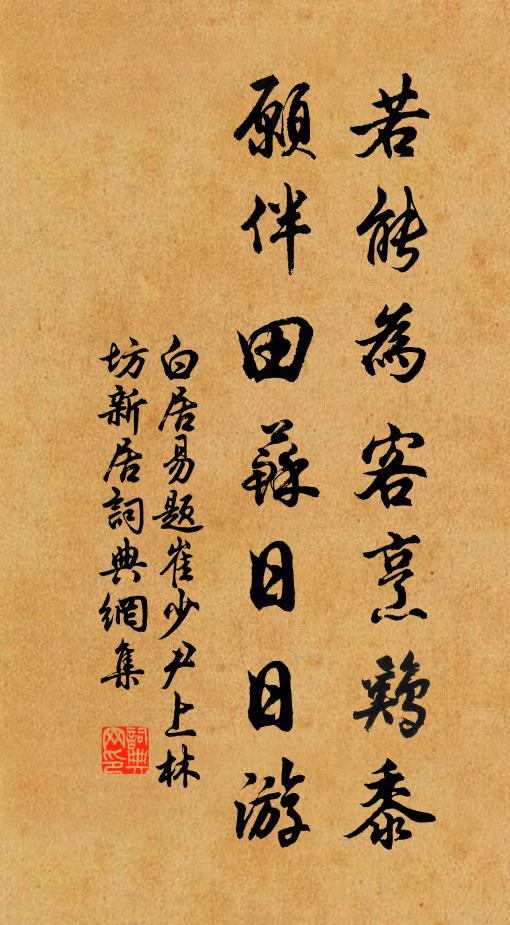 若能為客烹鷄黍
願伴田蘇日日游
白居易題崔少尹上林
坊新居詞典網集
詞典
网印